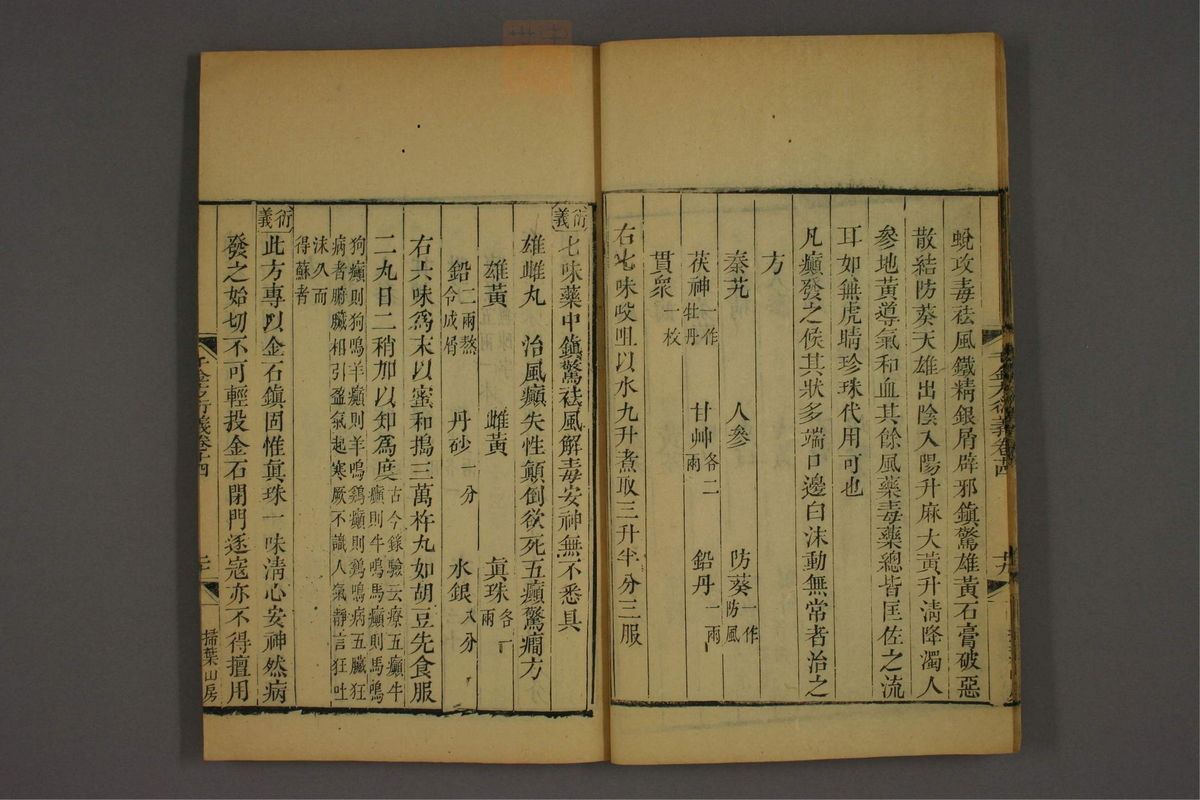 蛻攻毒祛風鐵精銀屑辟邪鎮驚雄黃石膏破惡
散結防葵天雄出陰入陽升麻大黃升清降濁人
參地黃導氣和血其餘風藥毒藥總皆匡佐之流
耳如無虎睛珍珠代用可也
凡癲發之候其狀多端口邊白沫動無常者治之
方
秦艽 人參 防葵一作防風
茯神一作牡丹 甘艸各二兩 鉛丹一兩
貫衆一枚
右七味㕮咀以水九升煮取三升半分三服
衍義七味藥中鎮驚祛風解毒安神無不悉具
雄雌丸 治風癲失性顛倒欲死五癲驚癇方
雄黃 雌黃 眞珠各一兩
鉛二兩熬令成屑 丹砂一分 水銀八分
右六味爲末以蜜和搗三萬杵丸如胡豆先食服
二丸日二稍加以知爲度古今錄驗云療五癲牛癲則牛鳴馬癲則馬鳴
狗癲則狗鳴羊癲則羊鳴鷄癲則鷄鳴病五臟狂
病者腑臟相引盈氣起寒厥不識人氣靜言狂吐
沫久而
得蘇者
衍義此方專以金石鎮固惟眞珠一味清心安神然病
發之始切不可輕投金石閉門逐寇亦不得擅用
千金方衍義卷十四
掃葉山房